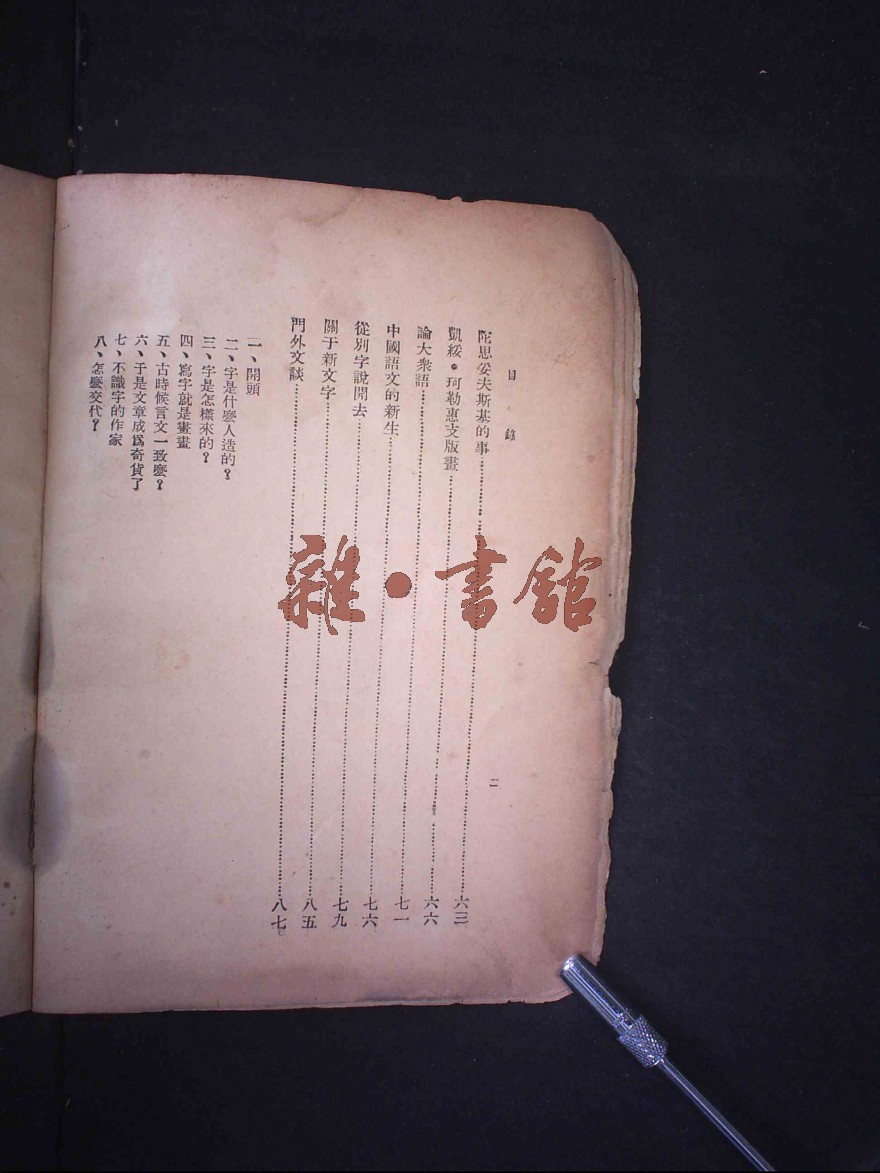 目錄 二
陀思妥夫斯基的事…………六三
凱綏・珂勒惠支版畫…………六六
論大衆語…………七一
中國語文的新生…………七六
從別字說開去…………七九
關于新文字…………八五
門外文談…………八七
一、開頭
二、字是什麼人造的？
三、字是怎樣來的？
四、寫字就是畫畫
五、古時候言文一致麼？
六、于是文章成爲奇貨了
七、不識字的作家
八、怎麼交代？
雜・書館